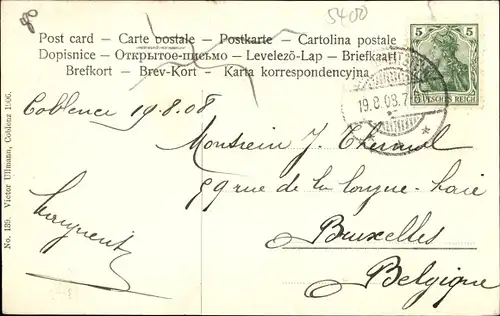 5400
Post card – Carte postale – Postkarte – Cartolina postale
Dopisnice – Открытое-письмо – Levelező-Lap – Briefkaart
Brefkort – Brev-Kort – Karta korrespondencyjna
5 5
DEUTSCHES REICH
19.8.08.7
Coblence 19.8.08
Monsieur J.
59 rue de la longue-haie
Bruxelles
Belgique
No. 139. Victor Ullmann, Coblenz 1906.